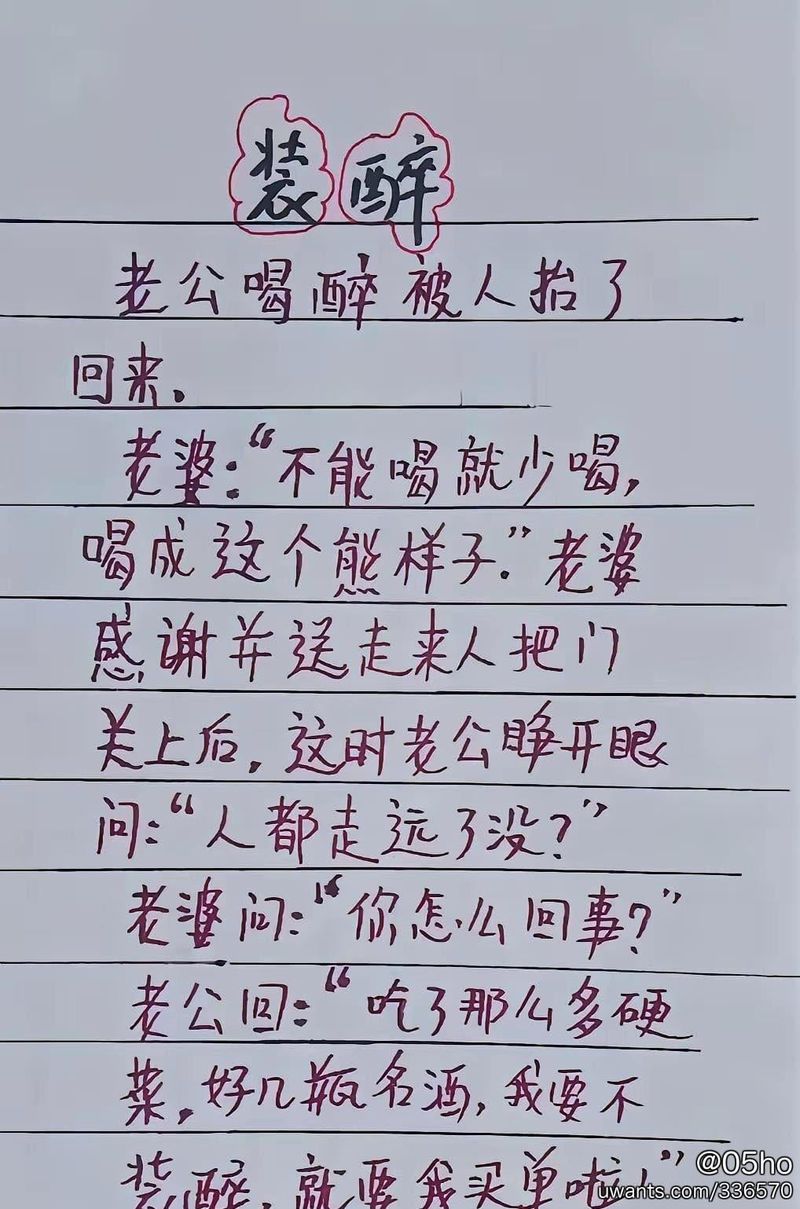 装醉
老公喝醉被人抬了
回来。
老婆:“不能喝就少喝,
喝成这个熊样子.”老婆
感谢并送走来人把门
关上后,这时老公睁开眼
问:“人都走远了没?”
老婆问:“你怎么回事?”
老公回:“吃了那么多硬
菜,好几瓶名酒,我要不
装醉,就要我买单啦!”
@05ho
uwants.com/336570